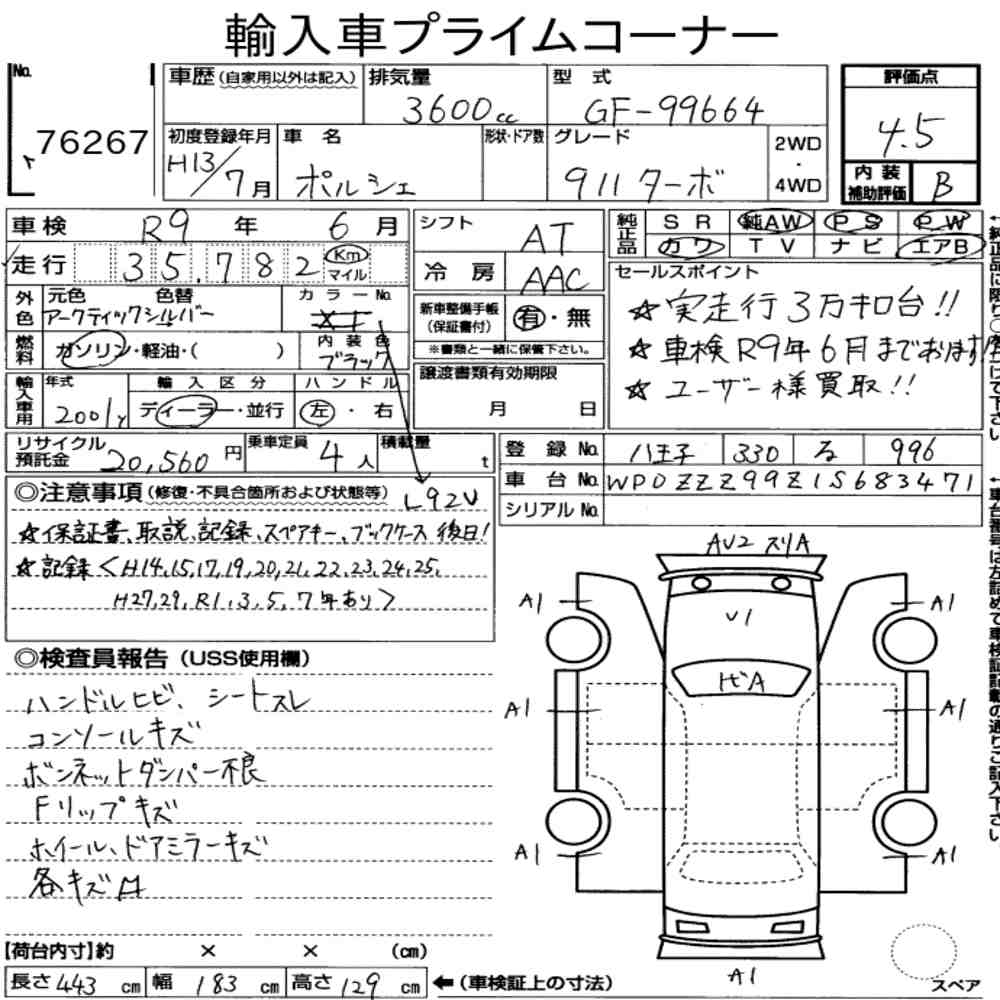 輸入車プライムコーナー
No.
76267
車歴(自家用以外は記入)
排気量
3600cc
型 式
GF-99664
初度登録年月
H13/7月
車 名
ポルシェ
形状・ドア数
グレード
911ターボ
2WD
・
4WD
評価点
4.5
内 装
補助評価
B
車検 R9 年 6 月
走行 35,782 Km
マイル
外色
元色 色替
アークティックシルバー
カラーNo.
燃料
ガソリン・軽油・( )
内装色
ブラック
輸入車用
年式
2001y
輸入区分
ディーラー・並行
ハンドル
左・右
リサイクル
預託金 20,560円
乗車定員
4人
積載量
t
シフト
AT
冷 房
AAC
新車整備手帳
(保証書付)
有・無
※書類と一緒に保管下さい。
譲渡書類有効期限
月 日
純正品
SR 純AW PS PW
カワ TV ナビ エアB
セールスポイント
☆実走行3万キロ台!!
☆車検R9年6月までおります
☆ユーザー様買取!!
登 録 No. 八王子 330 る 996
車 台 No. WP0ZZZ99Z1S683471
シリアル No.
◎注意事項(修復・不具合箇所および状態等)
L92V
☆保証書、取説、記録、スペアキー、ブックケース 後日!
☆記録<H14,15,17,19,20,21,22,23,24,25,
H27,29,R1,3,5,7年あり>
◎検査員報告(USS使用欄)
ハンドルヒビ、シートスレ
コンソールキズ
ボンネットダンパー不良
Fリップキズ
ホイール、ドアミラーキズ
各キズA
【荷台内寸】約 × × (cm)
長さ443cm 幅183cm 高さ129cm ←(車検証上の寸法)
AV2 スリA
A1
A1
U1
トビA
A1
A1
A1
A1
A1
スペア